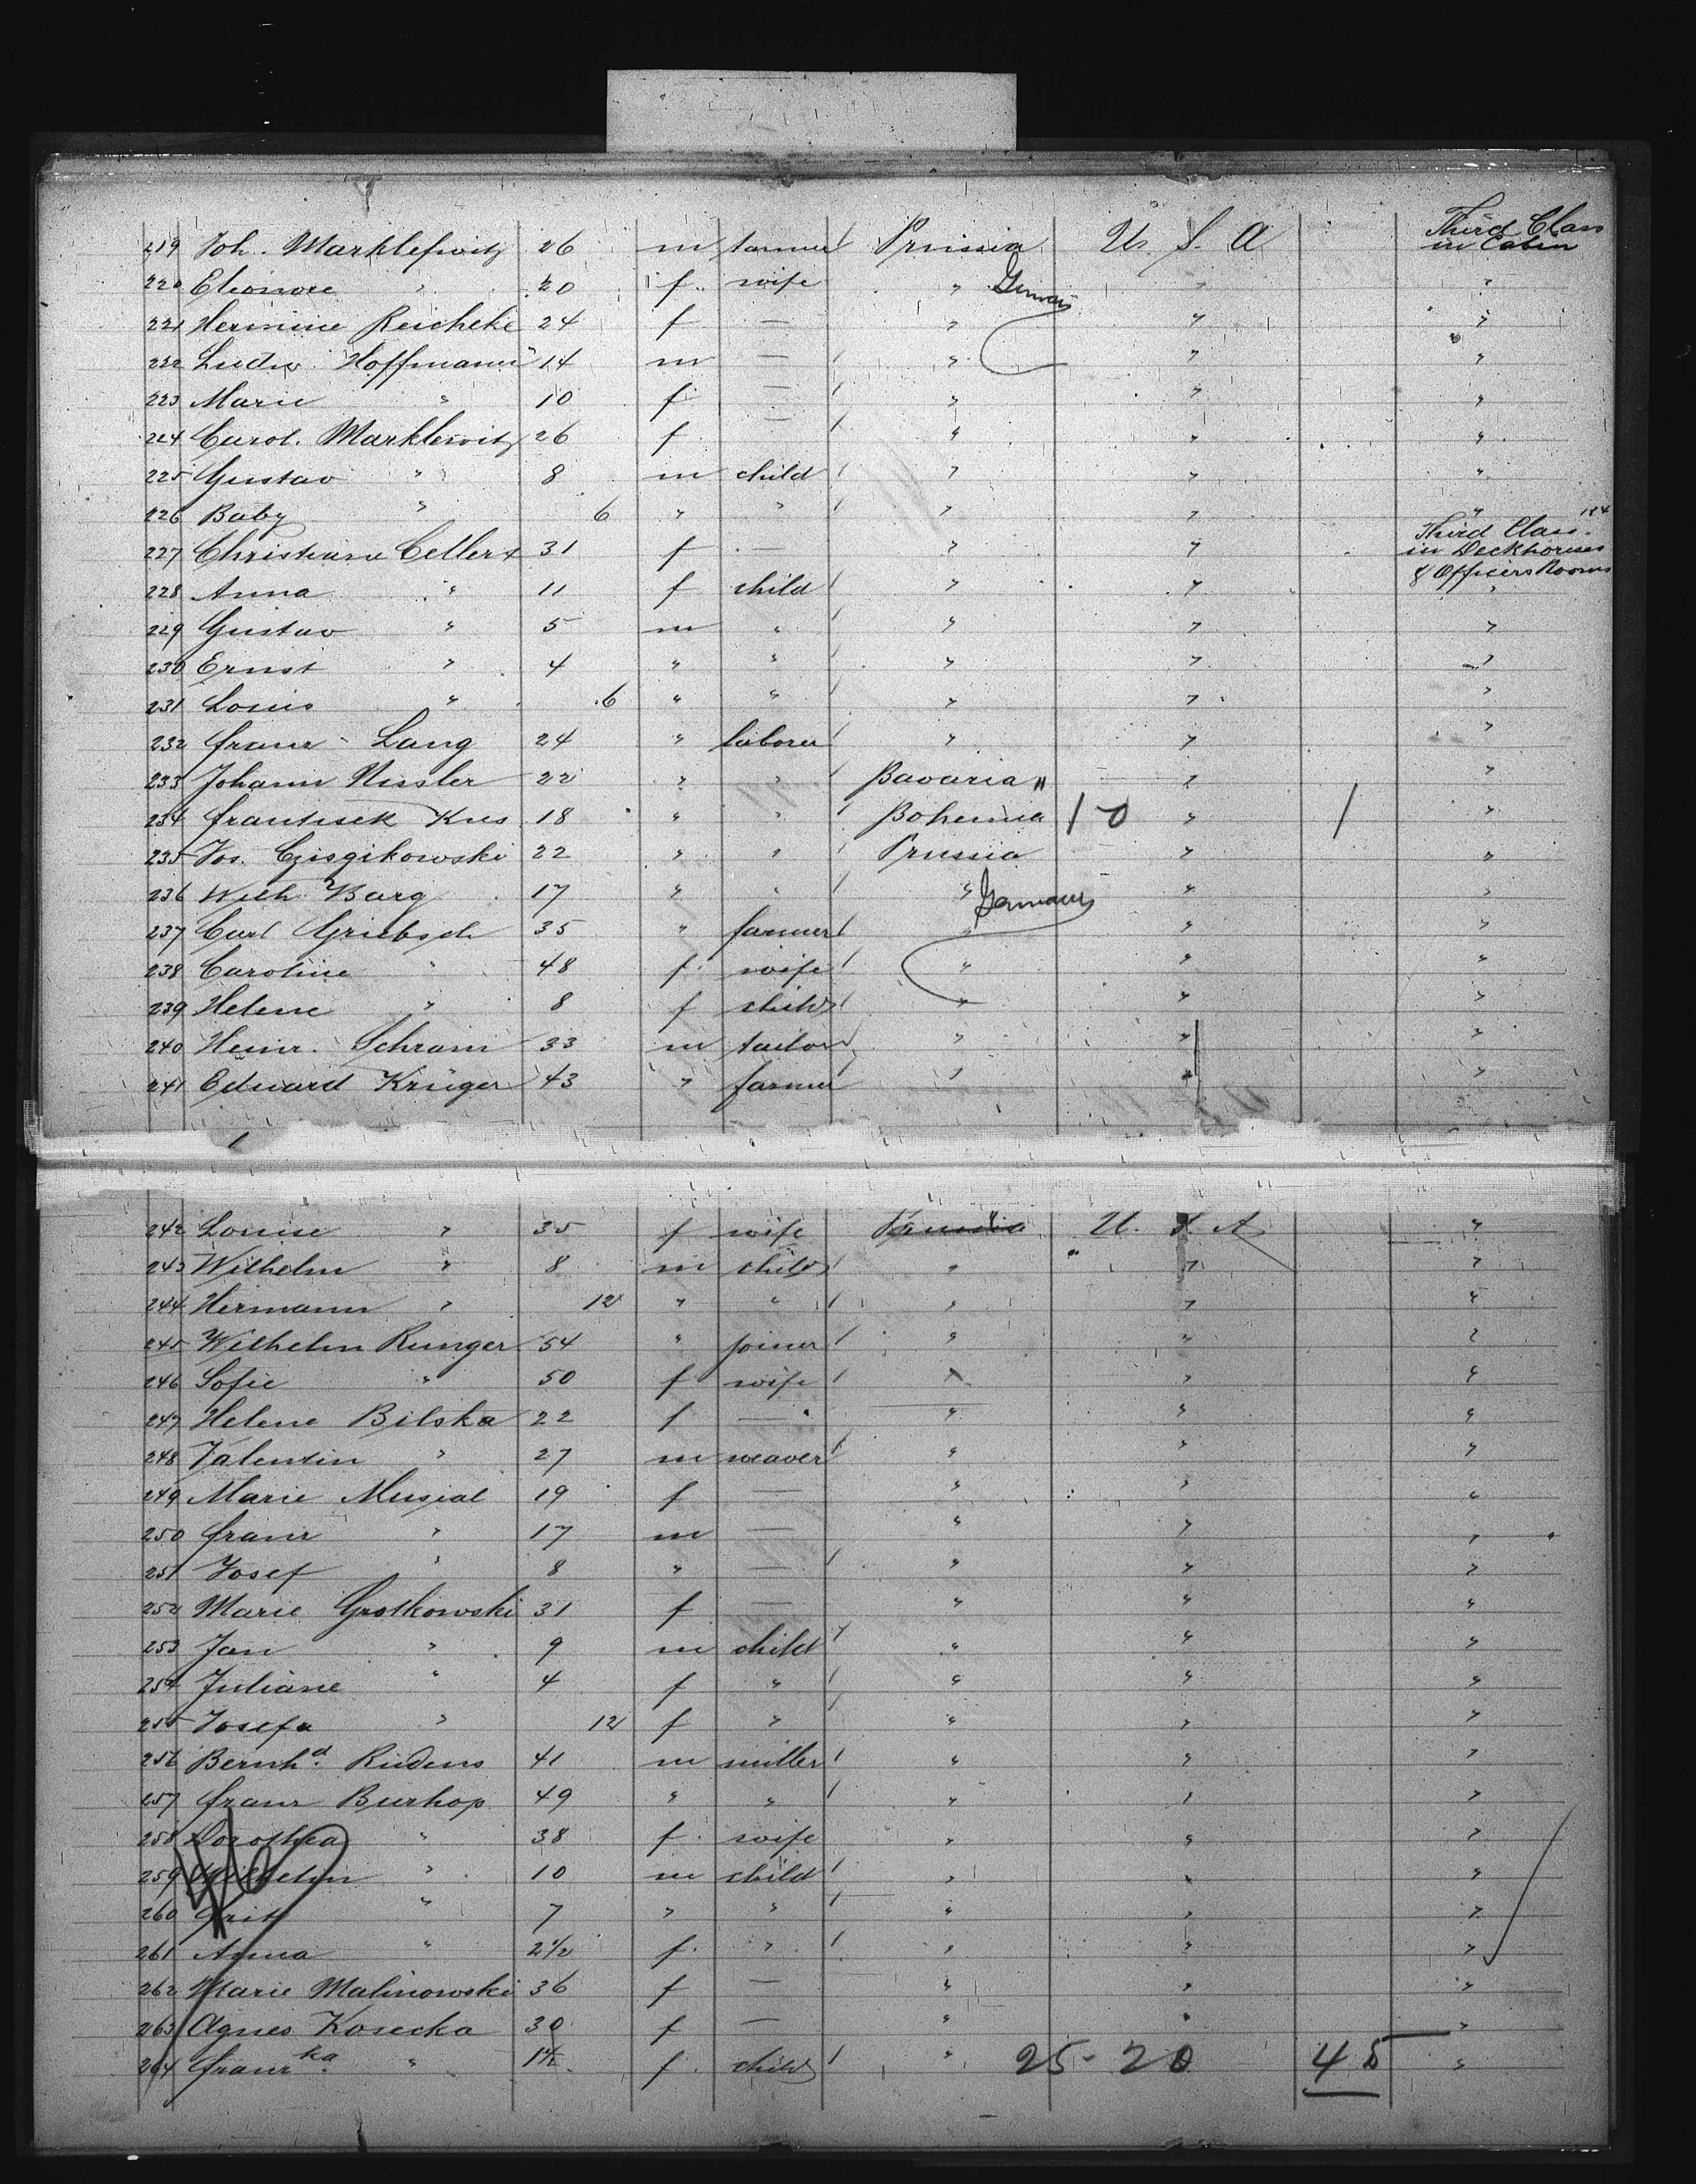 219 Joh. Marklefwitz 26 m farmer Prussia U. S. A Third Class in Cabin
220 Eleonore " 20 f wife " Germany " "
221 Hermine Reicheke 24 f — " " "
222 Ludw. Hoffmann 14 m — " " "
223 Marie " 10 f — " " "
224 Carol. Marklewitz 26 f " " "
225 Gustav " 8 m child " " "
226 Baby " 6 " " " " "
184
227 Christiana Cellert 31 f — " " Third Class in Deckhouses & Officers Rooms
228 Anna " 11 f child " " "
229 Gustav " 5 m " " " "
230 Ernst " 4 " " " " "
231 Louis " 6 " " " " "
232 Franz Lang 24 " laborer " " "
233 Johann Nissler 22 " " Bavaria " " "
234 Frantisek Kus 18 " " Bohemia 1-0 " 1 "
235 Jos. Czisgikowski 22 " " Prussia " "
236 Wilh. Barg 17 " " " Germany " "
237 Carl Griebsch 35 " farmer " " "
238 Caroline " 48 f wife " " "
239 Helene " 8 f child " " "
240 Heinr. Schram 33 m tailor " " "
241 Edward Krüger 43 " farmer " " "
242 Louise " 35 f wife Prussia U. S. A "
243 Wilhelm " 8 m child " " "
244 Hermann " 12 " " " " "
245 Wilhelm Runger 54 " joiner " " "
246 Sofie " 50 f wife " " "
247 Helene Bilska 22 f — " " "
248 Valentin " 27 m weaver " " "
249 Marie Musial 19 f — " " "
250 Franz " 17 m — " " "
251 Josef " 8 " — " " "
252 Marie Grotkowski 31 f — " " "
253 Jan " 9 m child " " "
254 Juliane " 4 f " " " "
255 Josefa " 12 f " " " "
256 Bernhd. Rudens 41 m miller " " "
257 Franz Burhop 49 " " " " "
258 Dorothea " 38 f wife " " "
259 Wilhelm " 10 m child " " "
260 Fritz " 7 " " " " "
261 Anna " 2½ f " " " "
262 Marie Malinowski 36 f — " " "
263 Agnes Kosecka 30 f — " " "
264 Franzka " f child " 25-20 45 "